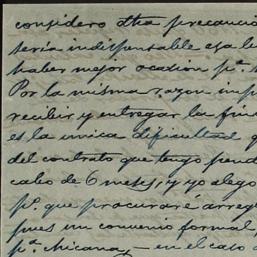 considero dha precaució
seria indispensable esa le
haber mejor ocasion pª.
Por la misma razon imp
recibir y entregar la fin
es la unica dificultad q
del contrato que tengo pend
cabo de 6 meses, y yo alego
pª. que procurare arreg
pues un convenio formal,
pª. Chicana, — en el caso d